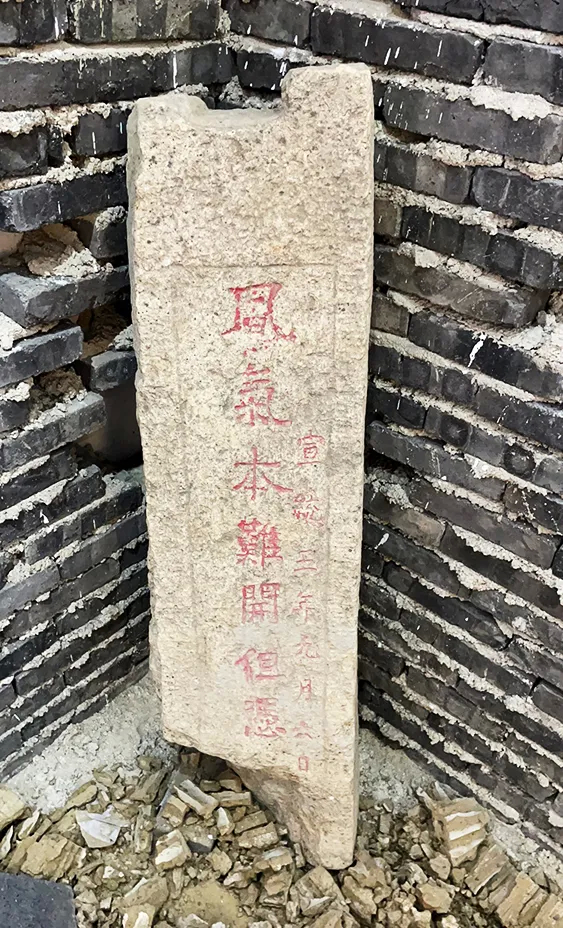 宣統三年元月六日
風氣本難開但憑